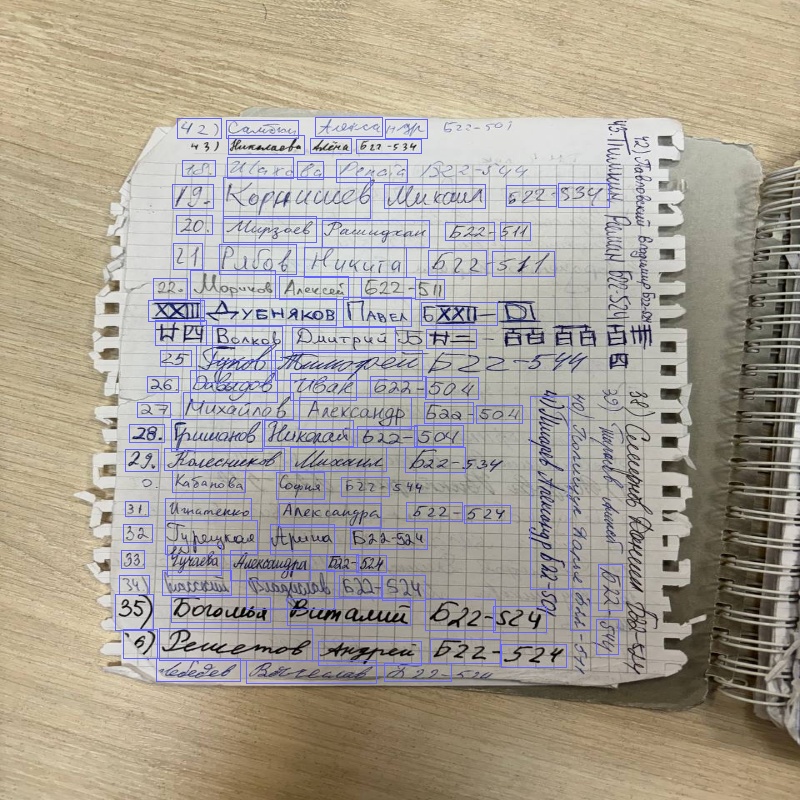 42) Александр Б22-501
43) Николаева Алёна Б22-534
18. Шахова Рената Б22-544
19. Корнишев Михаил Б22-534
20. Мирзоев Рашидхан Б22-511
21 Рябов Никита Б22-511
22. Моричов Алексей Б22-511
XXIII Дубняков Павел БXXII-DI
Волков Дмитрий Б
25 Тимофей Б22-544
26. Давыдов Иван Б22-504
27 Михайлов Александр Б22-504
28. Гриманов Николай Б22-504
29. Колесников Михаил Б22-534
0. Кабанова София Б22-544
31 Игнатенко Александра Б22-524
32 Турецкая Арина Б22-524
33 Чучаева Александра Б22-524
34) Владислав Б22-524
35) Виталий Б22-524
6) Решетов Андрей Б22-524
Лебедев Вячеслав Б22-524
42) Павловский Владимир Б22-504
43. Роман Б22-524
38) Даниил Б22-514
39) Б22-544
40) Дарья Б22-511
41) Александр Б22-501